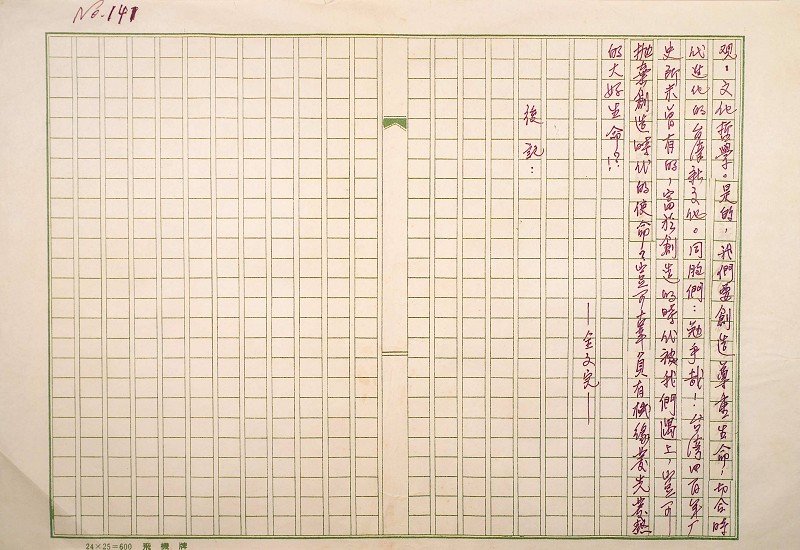 No.141
观，文化哲學。是的，我們要創造尊重生命，切合時
代進化的台湾新文化。同胞們：勉乎哉！台湾四百年
史所未曾有的，富於創造的時代被我們遇上，豈可
拋棄創造時代的使命？豈可辜負有機緣發光發熱
的大好生命？！
—全文完—
後記：
24×25=600 飛機牌